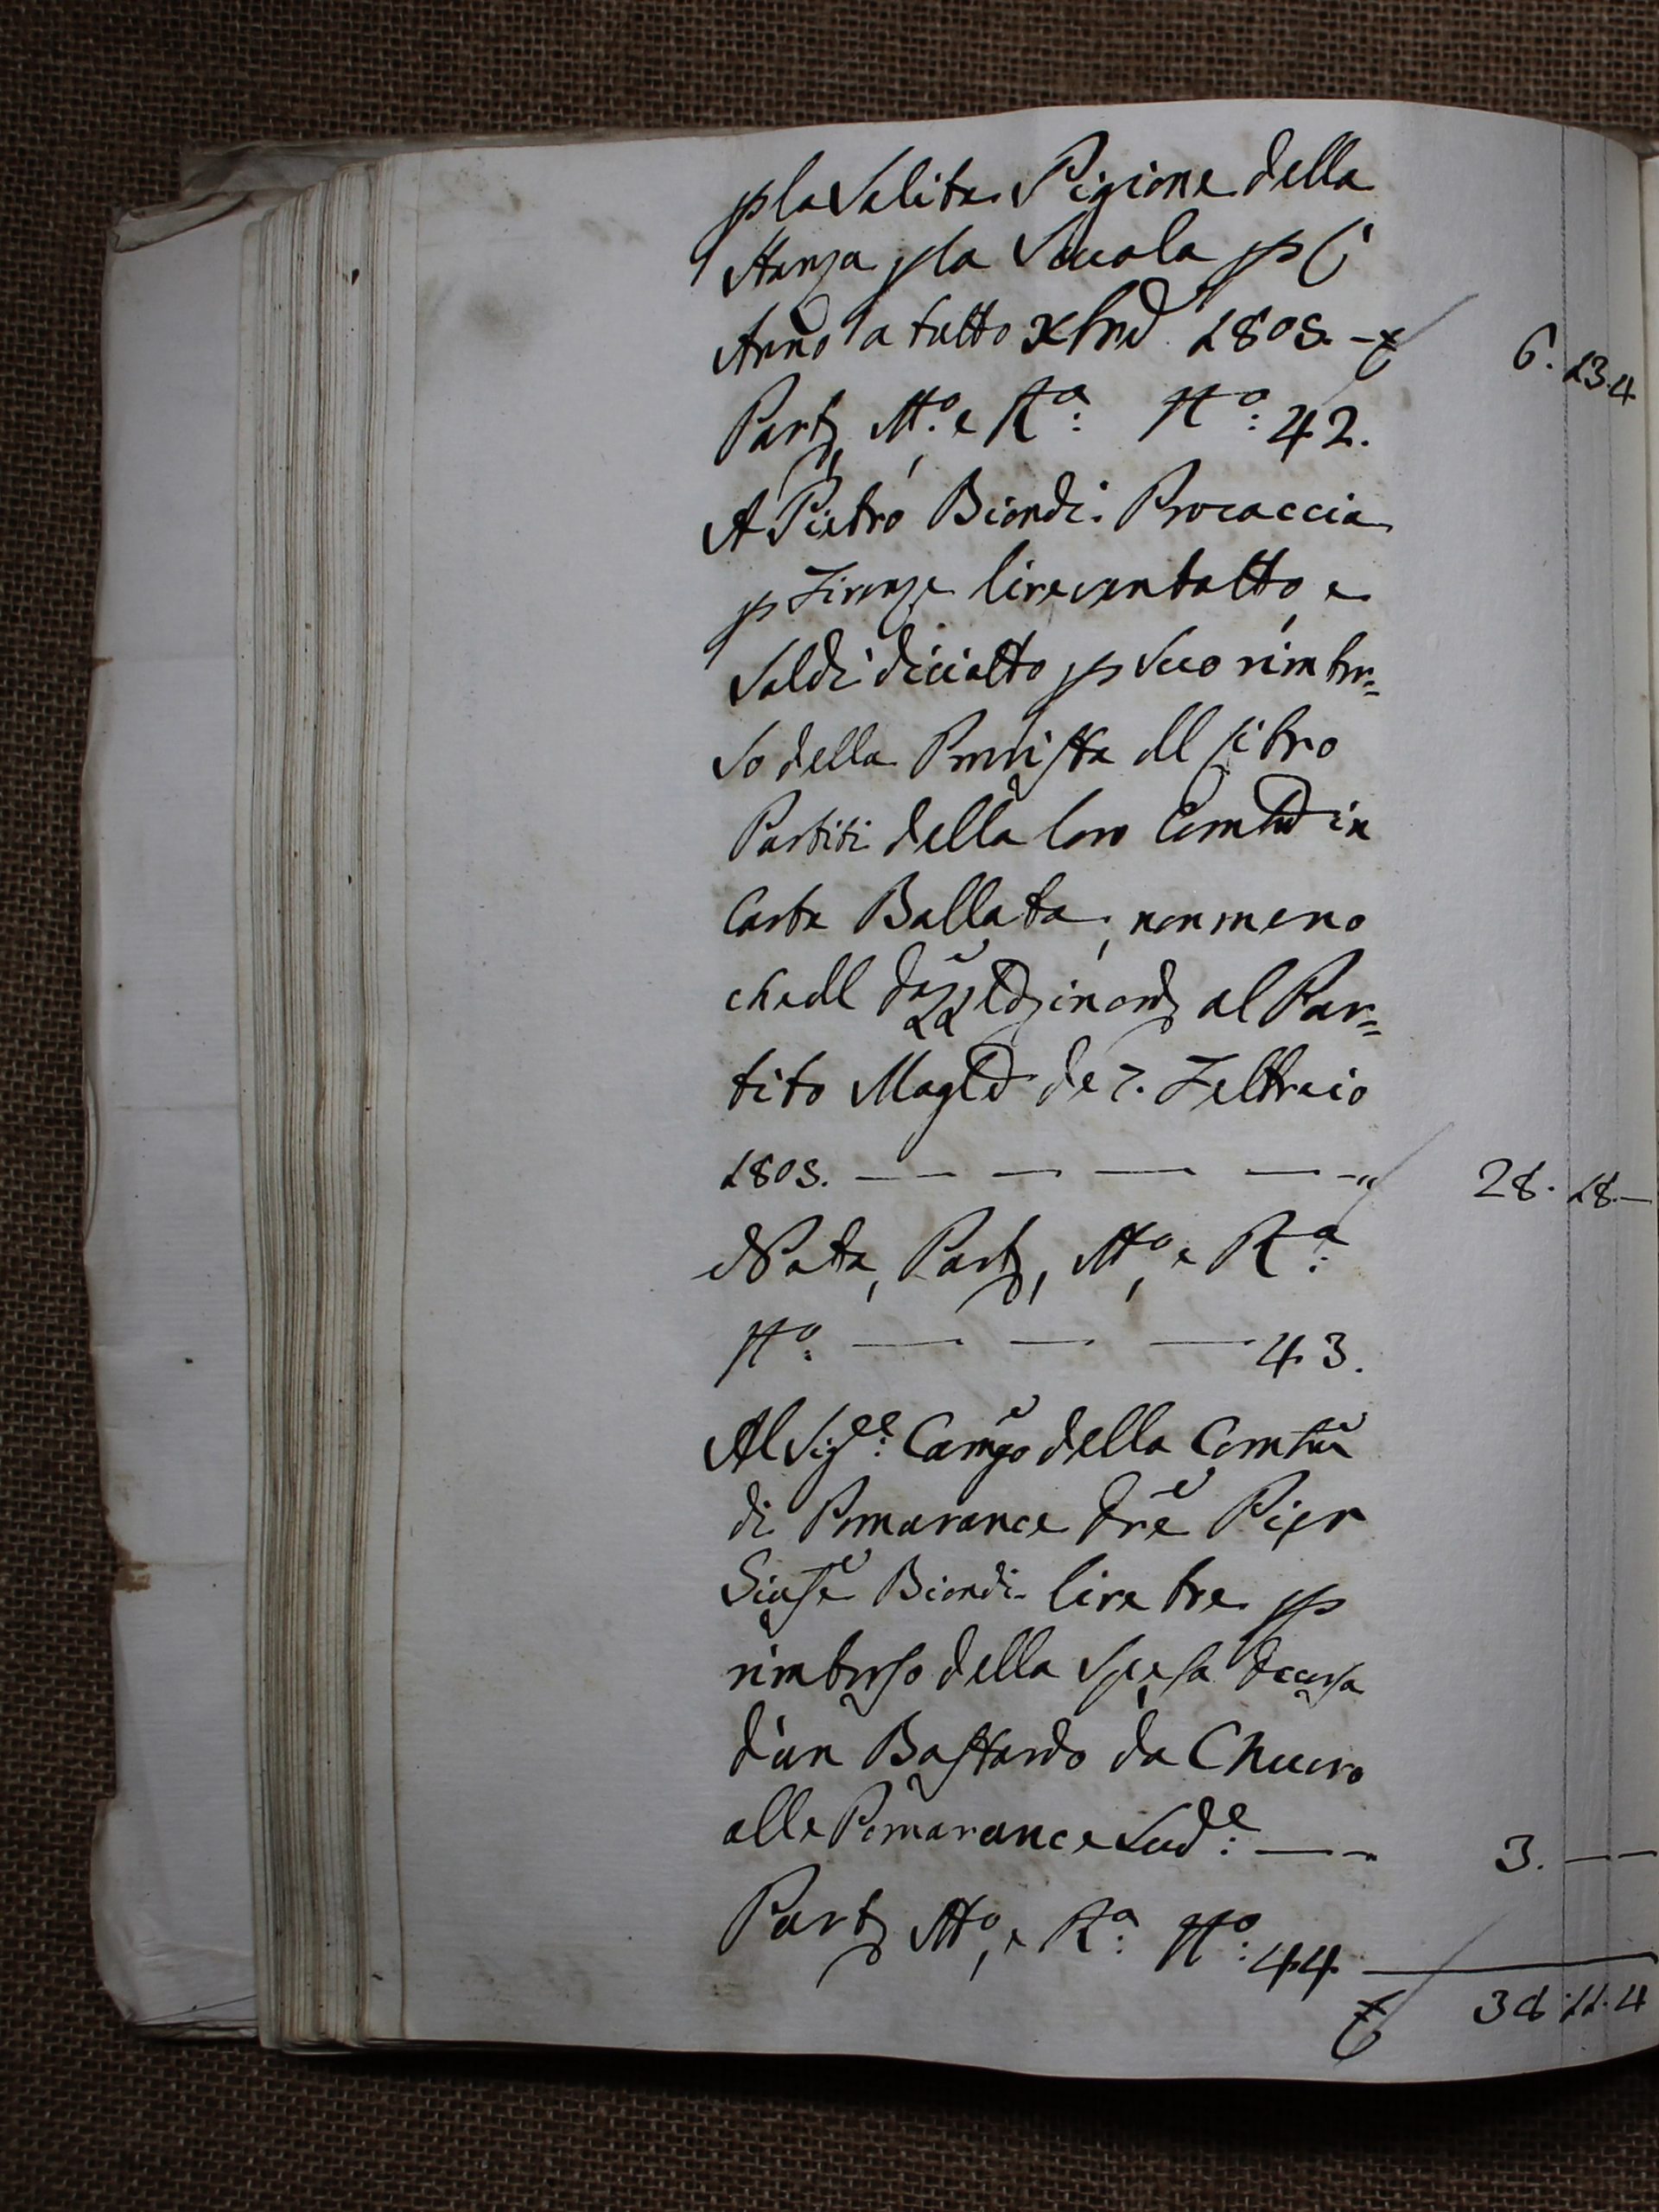 p la Solita Pigione della
Stanza p la Scuola p l'
Anno a tutto Xbre 1805. - £ 6. 13. 4
Part, Mo. e Ra: No: 42.
A Pietro Biondi Procaccia
p Firenze lire ventotto, e
Soldi diciotto p Suo rimbor=
so della Provvista del Libro
Partiti della loro Comtà in
Carta Bollata, non meno
che del in ord al Par=
tito Magle de 7. Febbraio
1805. — — — — -" 28. 18. —
Nota, Part, Mo. e Ra:
No: — — — 43.
Al Sigre: Camgo della Comtà
di Pomarance Pier
Giuse Biondi lire tre p
rimborso della Spesa
d'un Bastardo da
alle Pomarance Sude: — - 3. — —
Part, Mo, e Ra: No: 44.
£ 38. 11. 4